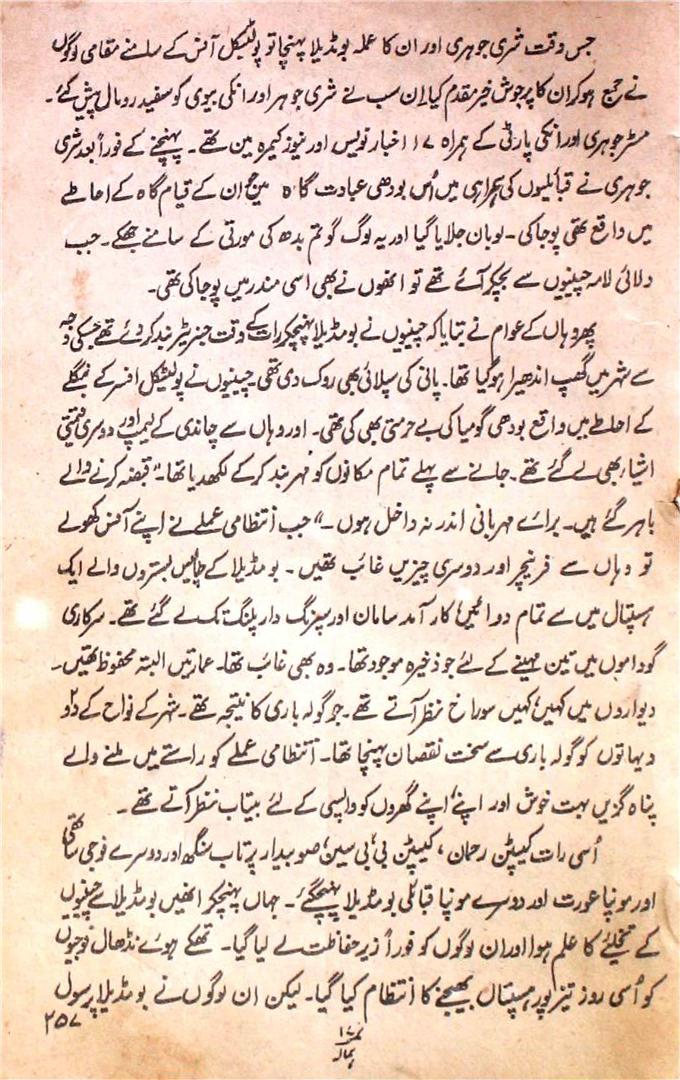 جس وقت شری جوہری اور ان کا عملہ بومڈیلا پہنچا تو پولٹیکل آفس کے سامنے مقامی لوگوں
نے جمع ہوکر ان کا پرجوش خیر مقدم کیا۔ ان سب نے شری جوہر اور انکی بیوی کو سفید رومال پیش کئے۔
مسٹر جوہری اور انکی پارٹی کے ہمراہ ۱۷ اخبار نویس اور نیوز کیمرہ مین تھے۔ پہنچنے کے فوراً بعد شری
جوہری نے قبائلیوں کی ہمراہی میں اُس بودھی عبادت گاہ میں جو ان کے قیام گاہ کے احاطے
میں واقع تھی پوجا کی۔ لوبان جلایا گیا اور یہ لوگ گوتم بدھ کی مورتی کے سامنے جھکے۔ جب
دلائی لامہ چینیوں سے بچکر آئے تھے تو انھوں نے بھی اسی مندر میں پوجا کی تھی۔
پھر وہاں کے عوام نے بتایا کہ چینیوں نے بومڈیلا پہنچکر رات کے وقت جنریٹر بند کر دئے تھے جسکی وجہ
سے شہر میں گھپ اندھیرا ہوگیا تھا۔ پانی کی سپلائی بھی روک دی تھی۔ چینیوں نے پولٹیکل افسر کے بنگلے
کے احاطے میں واقع بودھی گومپا کی بے حرمتی بھی کی تھی۔ اور وہاں سے چاندی کے لیمپ اور دوسری قیمتی
اشیا بھی لے گئے تھے۔ جانے سے پہلے تمام مکانوں کو مہر بند کرکے لکھدیا تھا۔ "قبضہ کرنے والے
باہر گئے ہیں۔ برائے مہربانی اندر نہ داخل ہوں۔" جب انتظامی عملے نے اپنے آفس کھولے
تو وہاں سے فرنیچر اور دوسری چیزیں غائب تھیں۔ بومڈیلا کے چالیس بستروں والے ایک
ہسپتال میں سے تمام دوائیں، کارآمد سامان اور سپرنگ دار پلنگ تک لے گئے تھے۔ سرکاری
گوداموں میں تین مہینے کے لئے جو ذخیرہ موجود تھا۔ وہ بھی غائب تھا۔ عمارتیں البتہ محفوظ تھیں۔
دیواروں میں کہیں کہیں سوراخ نظر آتے تھے۔ جو گولہ باری کا نتیجہ تھے۔ شہر کے نواح کے دو
دیہاتوں کو گولہ باری سے سخت نقصان پہنچا تھا۔ انتظامی عملے کو راستے میں ملنے والے
پناہ گزیں بہت خوش اور اپنے اپنے گھروں کو واپسی کے لئے بیتاب نظر آتے تھے۔
اُسی رات کیپٹن رحمان، کیپٹن بی بی سین، صوبیدار پرتاب سنگھ اور دوسرے فوجی ساتھی
اور مونپا عورت اور دوسرے مونپا قبائلی بومڈیلا پہنچ گئے۔ جہاں پہنچکر انھیں بومڈیلا سے چینیوں
کے تخلیئے کا علم ہوا اور ان لوگوں کو فوراً زیر حفاظت لے لیا گیا۔ تھکے ہوئے نڈھال فوجیوں
کو اُسی روز تیزپور ہسپتال بھیجنے کا انتظام کیا گیا۔ لیکن ان لوگوں نے بومڈیلا پر سول
۲۵۷
نمبر ۱۷
ہمالہ